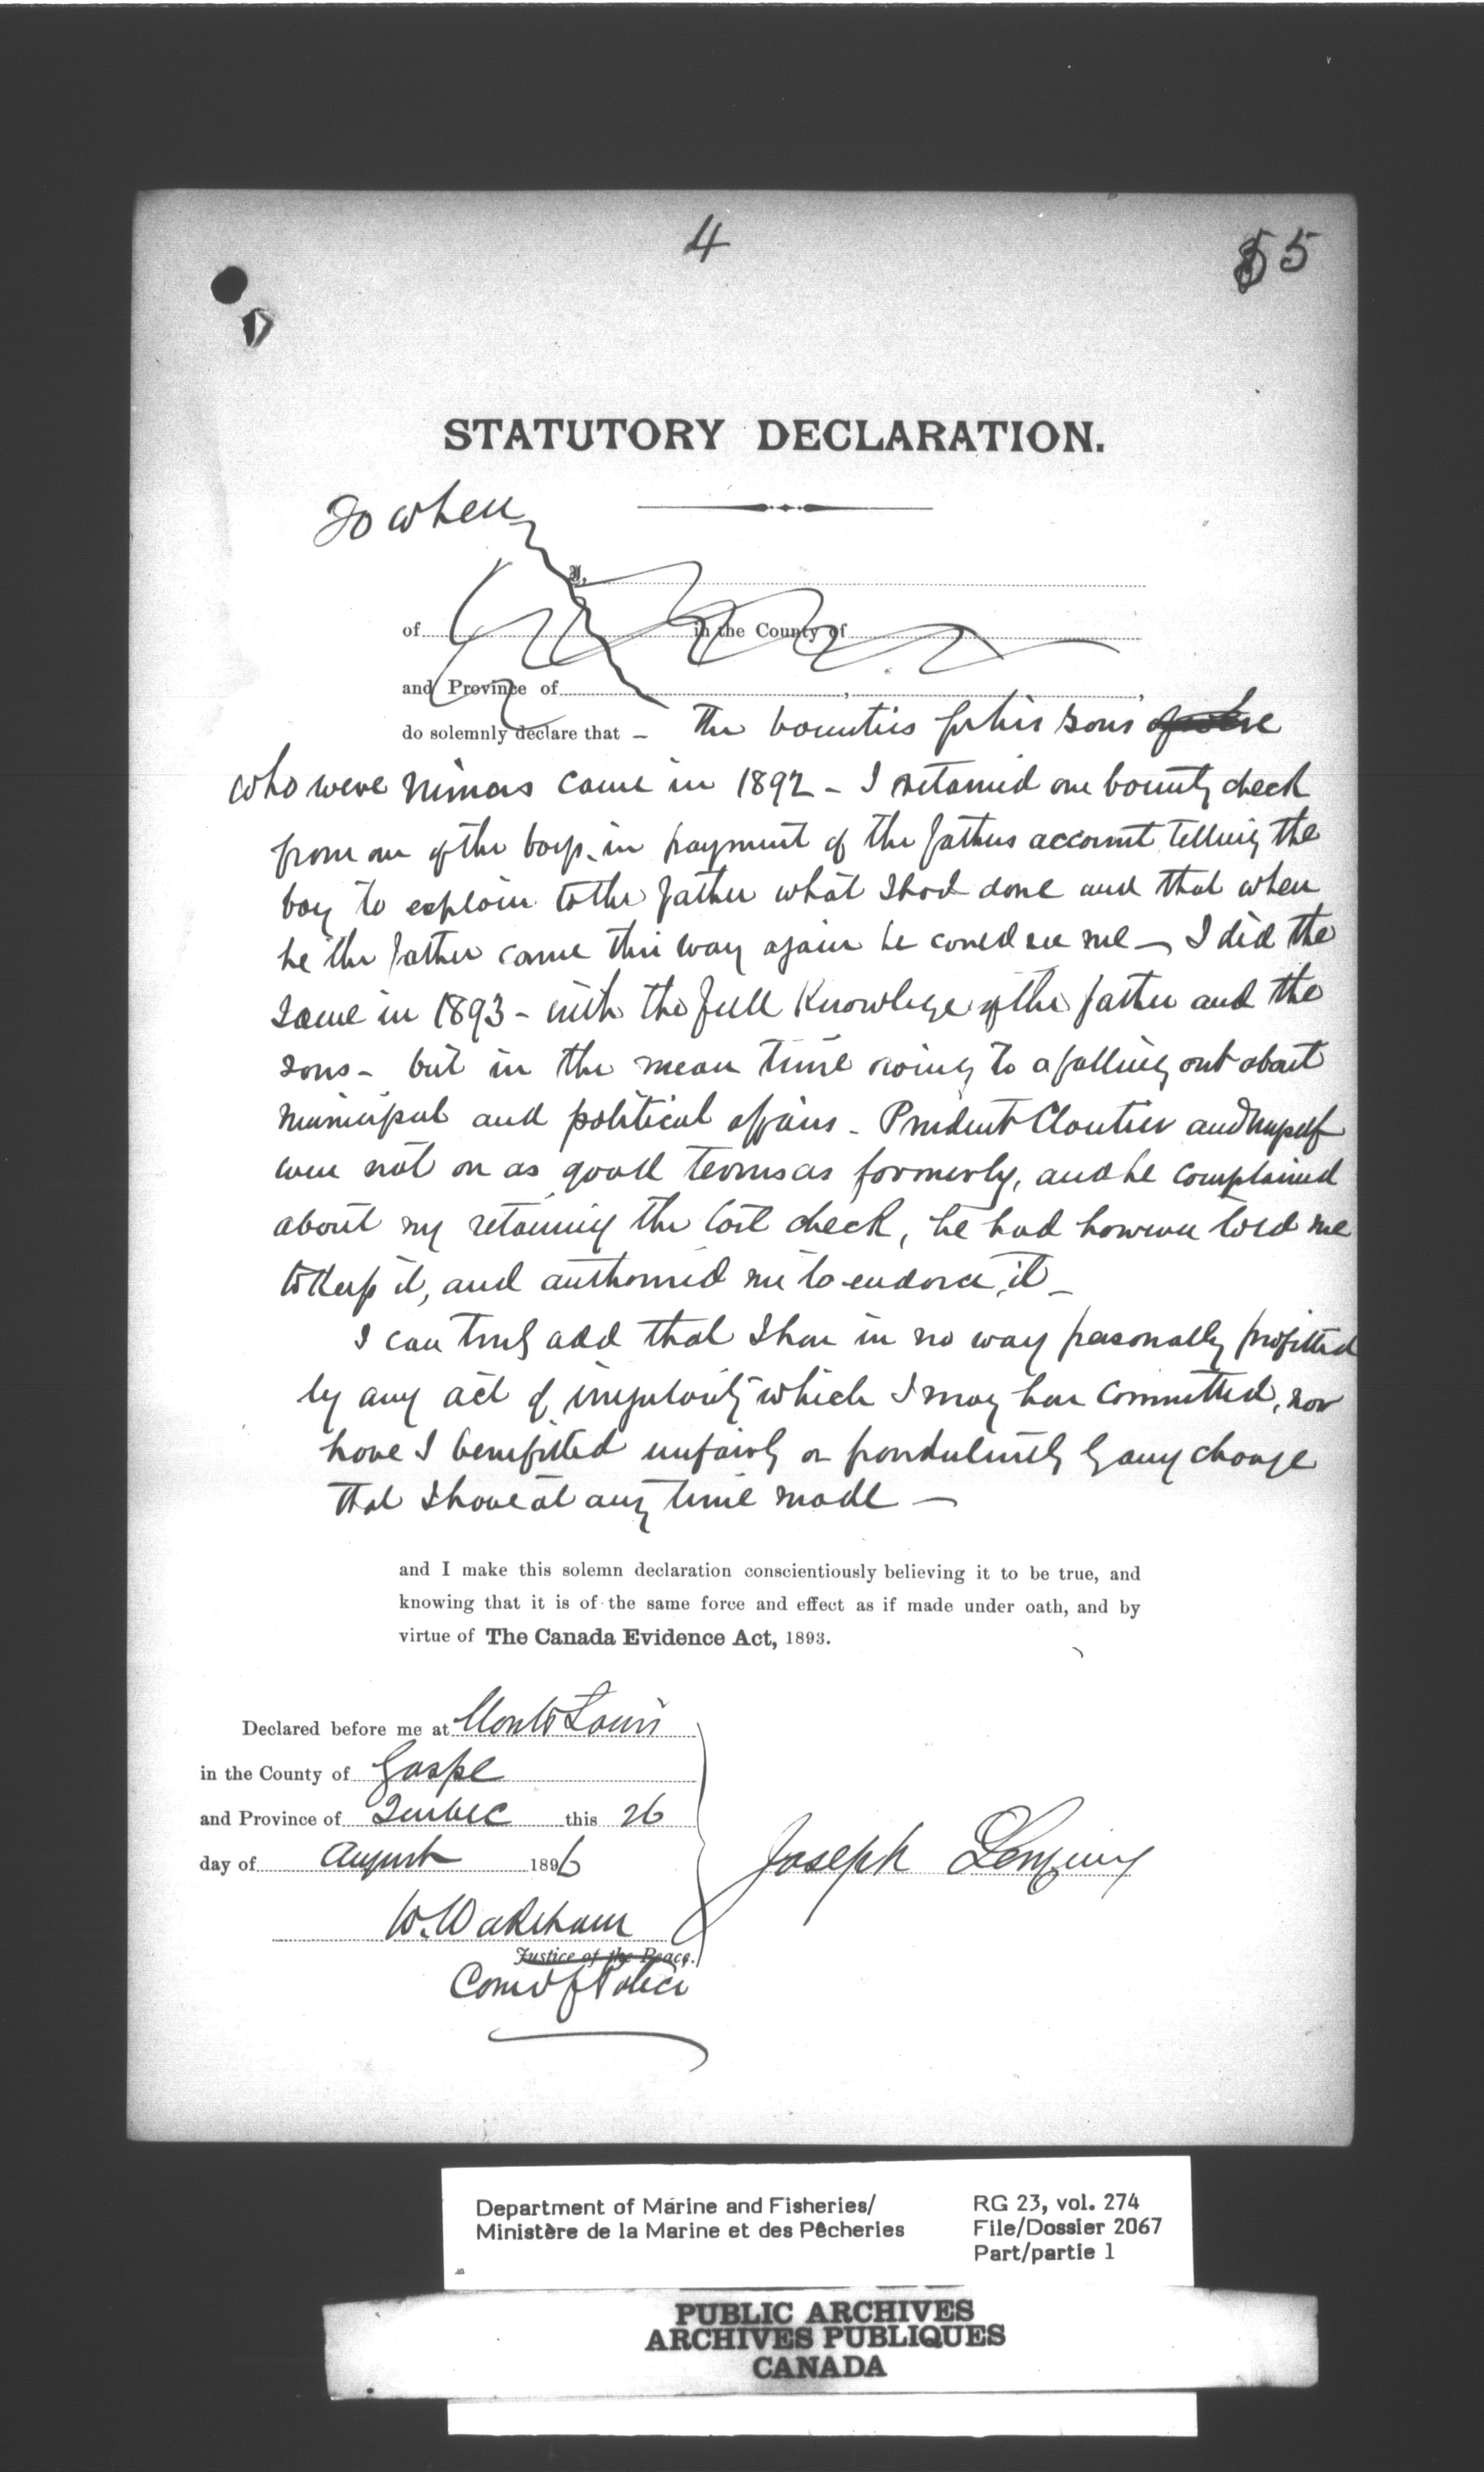 4
55
STATUTORY DECLARATION.
So when
I,
of in the County of
and Province of , ,
do solemnly declare that - The bounties for his sons
who were minors came in 1892 - I retained one bounty check
from one of the boys. in payment of the fathers account telling the
boy to explain to the father what I had done and that when
he the father came this way again he could see me - I did the
same in 1893 - with the full knowledge of the father and the
sons - but in the mean time owing to a falling out about
municipal and political affairs - Prudent Cloutier and myself
were not on as good terms as formerly, and he complained
about my retaining the last check, he had however told me
to keep it, and authorised me to endorse it -
I can truly add that I have in no way personally profitted
by any act of irregularity which I may have committed, nor
have I benefitted unfairly or fraudulently by any charge
that I have at any time made -
and I make this solemn declaration conscientiously believing it to be true, and
knowing that it is of the same force and effect as if made under oath, and by
virtue of The Canada Evidence Act, 1893.
Declared before me at Mont Louis
in the County of Gaspe
and Province of Quebec this 26
day of August 1896
Joseph
W. Wakeham
Justice of the Peace.
Comr of Police
Department of Marine and Fisheries/
Ministère de la Marine et des Pêcheries
RG 23, vol. 274
File/Dossier 2067
Part/partie 1
PUBLIC ARCHIVES
ARCHIVES PUBLIQUES
CANADA